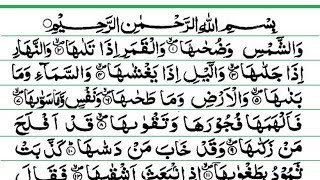 بِسْمِ اللّٰهِ الرَّحْمٰنِ الرَّحِيْمِ
وَالشَّمْسِ وَضُحٰىهَا ۝۱ وَالْقَمَرِ اِذَا تَلٰىهَا ۝۲ وَالنَّهَارِ
اِذَا جَلّٰىهَا ۝۳ وَالَّيْلِ اِذَا يَغْشٰىهَا ۝۴ وَالسَّمَآءِ وَمَا
بَنٰىهَا ۝۵ وَالْاَرْضِ وَمَا طَحٰىهَا ۝۶ وَنَفْسٍ وَّمَا سَوّٰىهَا ۝۷
فَاَلْهَمَهَا فُجُوْرَهَا وَتَقْوٰىهَا ۝۸ قَدْ اَفْلَحَ
مَنْ زَكّٰىهَا ۝۹ وَقَدْ خَابَ مَنْ دَسّٰىهَا ۝۱۰ كَذَّبَتْ
ثَمُوْدُ بِطَغْوٰىهَآ ۝۱۱ اِذِ انْۢبَعَثَ اَشْقٰىهَا ۝۱۲ فَقَالَ